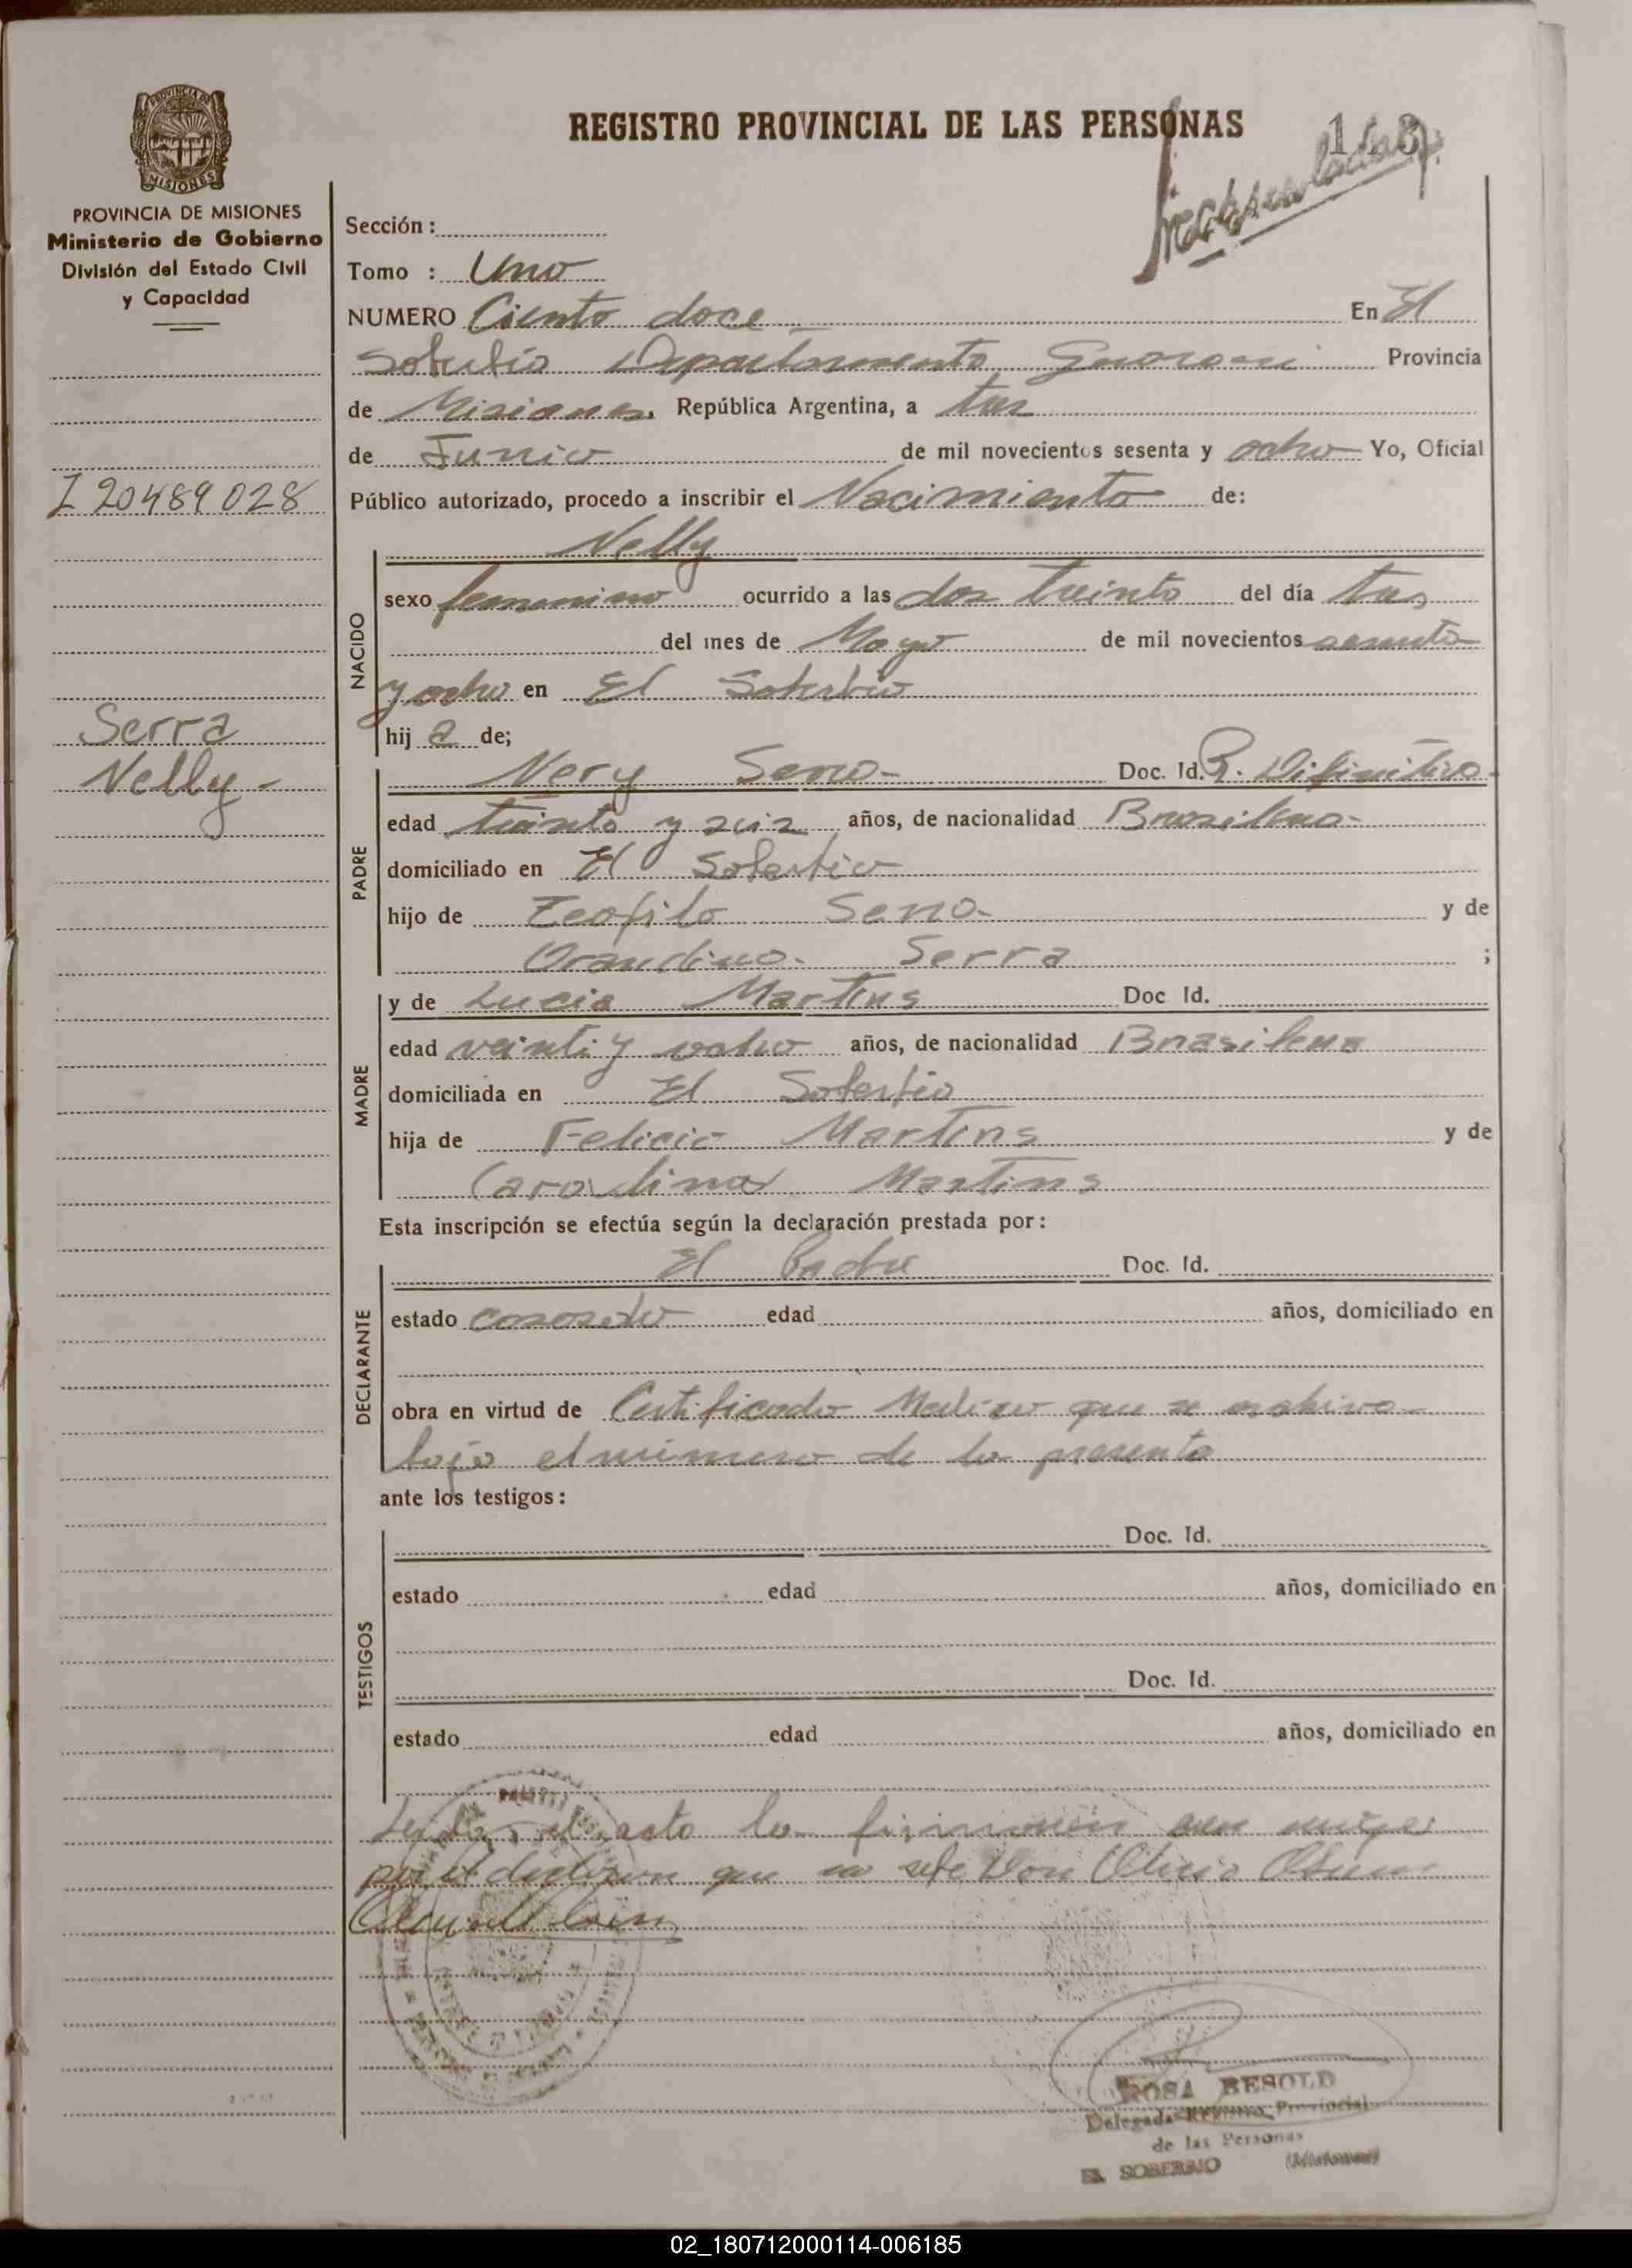 REGISTRO PROVINCIAL DE LAS PERSONAS
MISIONES
PROVINCIA DE MISIONES
Ministerio de Gobierno
División del Estado Civil
y Capacidad
I 20489028
Serra
Nelly-
Sección:
Tomo : Uno
NUMERO Ciento doce En El
Soberbio Departamento Guarani Provincia
de Misiones, República Argentina, a tres
de Junio de mil novecientos sesenta y ocho Yo, Oficial
Público autorizado, procedo a inscribir el Nacimiento de:
NACIDO
Nelly
sexo femenino ocurrido a las dos treinta del día tres
del mes de Mayo de mil novecientos sesenta
y ocho en El Soberbio
hij a de;
PADRE
Nery Serra- Doc. Id. R. Difinitiva-
edad treinta y seis años, de nacionalidad Brasilena-
domiciliado en El Soberbio
hijo de Teofilo Serra- y de
Orandina- Serra ;
MADRE
y de Lucia Martins Doc Id.
edad veinti y ocho años, de nacionalidad Brasilena
domiciliada en El Soberbio
hija de Felicio Martins y de
Carolina Martins
Esta inscripción se efectúa según la declaración prestada por:
DECLARANTE
El Padre Doc. Id.
estado casado edad años, domiciliado en
obra en virtud de Certificado Medico que se archiva
bajo el numero de la presente
ante los testigos:
TESTIGOS
Doc. Id.
estado edad años, domiciliado en
Doc. Id.
estado edad años, domiciliado en
el acto lo
por el que no Don
ROSA BESOLD
Delegada Registro Provincial
de las Personas
EL SOBERBIO (Misiones)
02_180712000114-006185